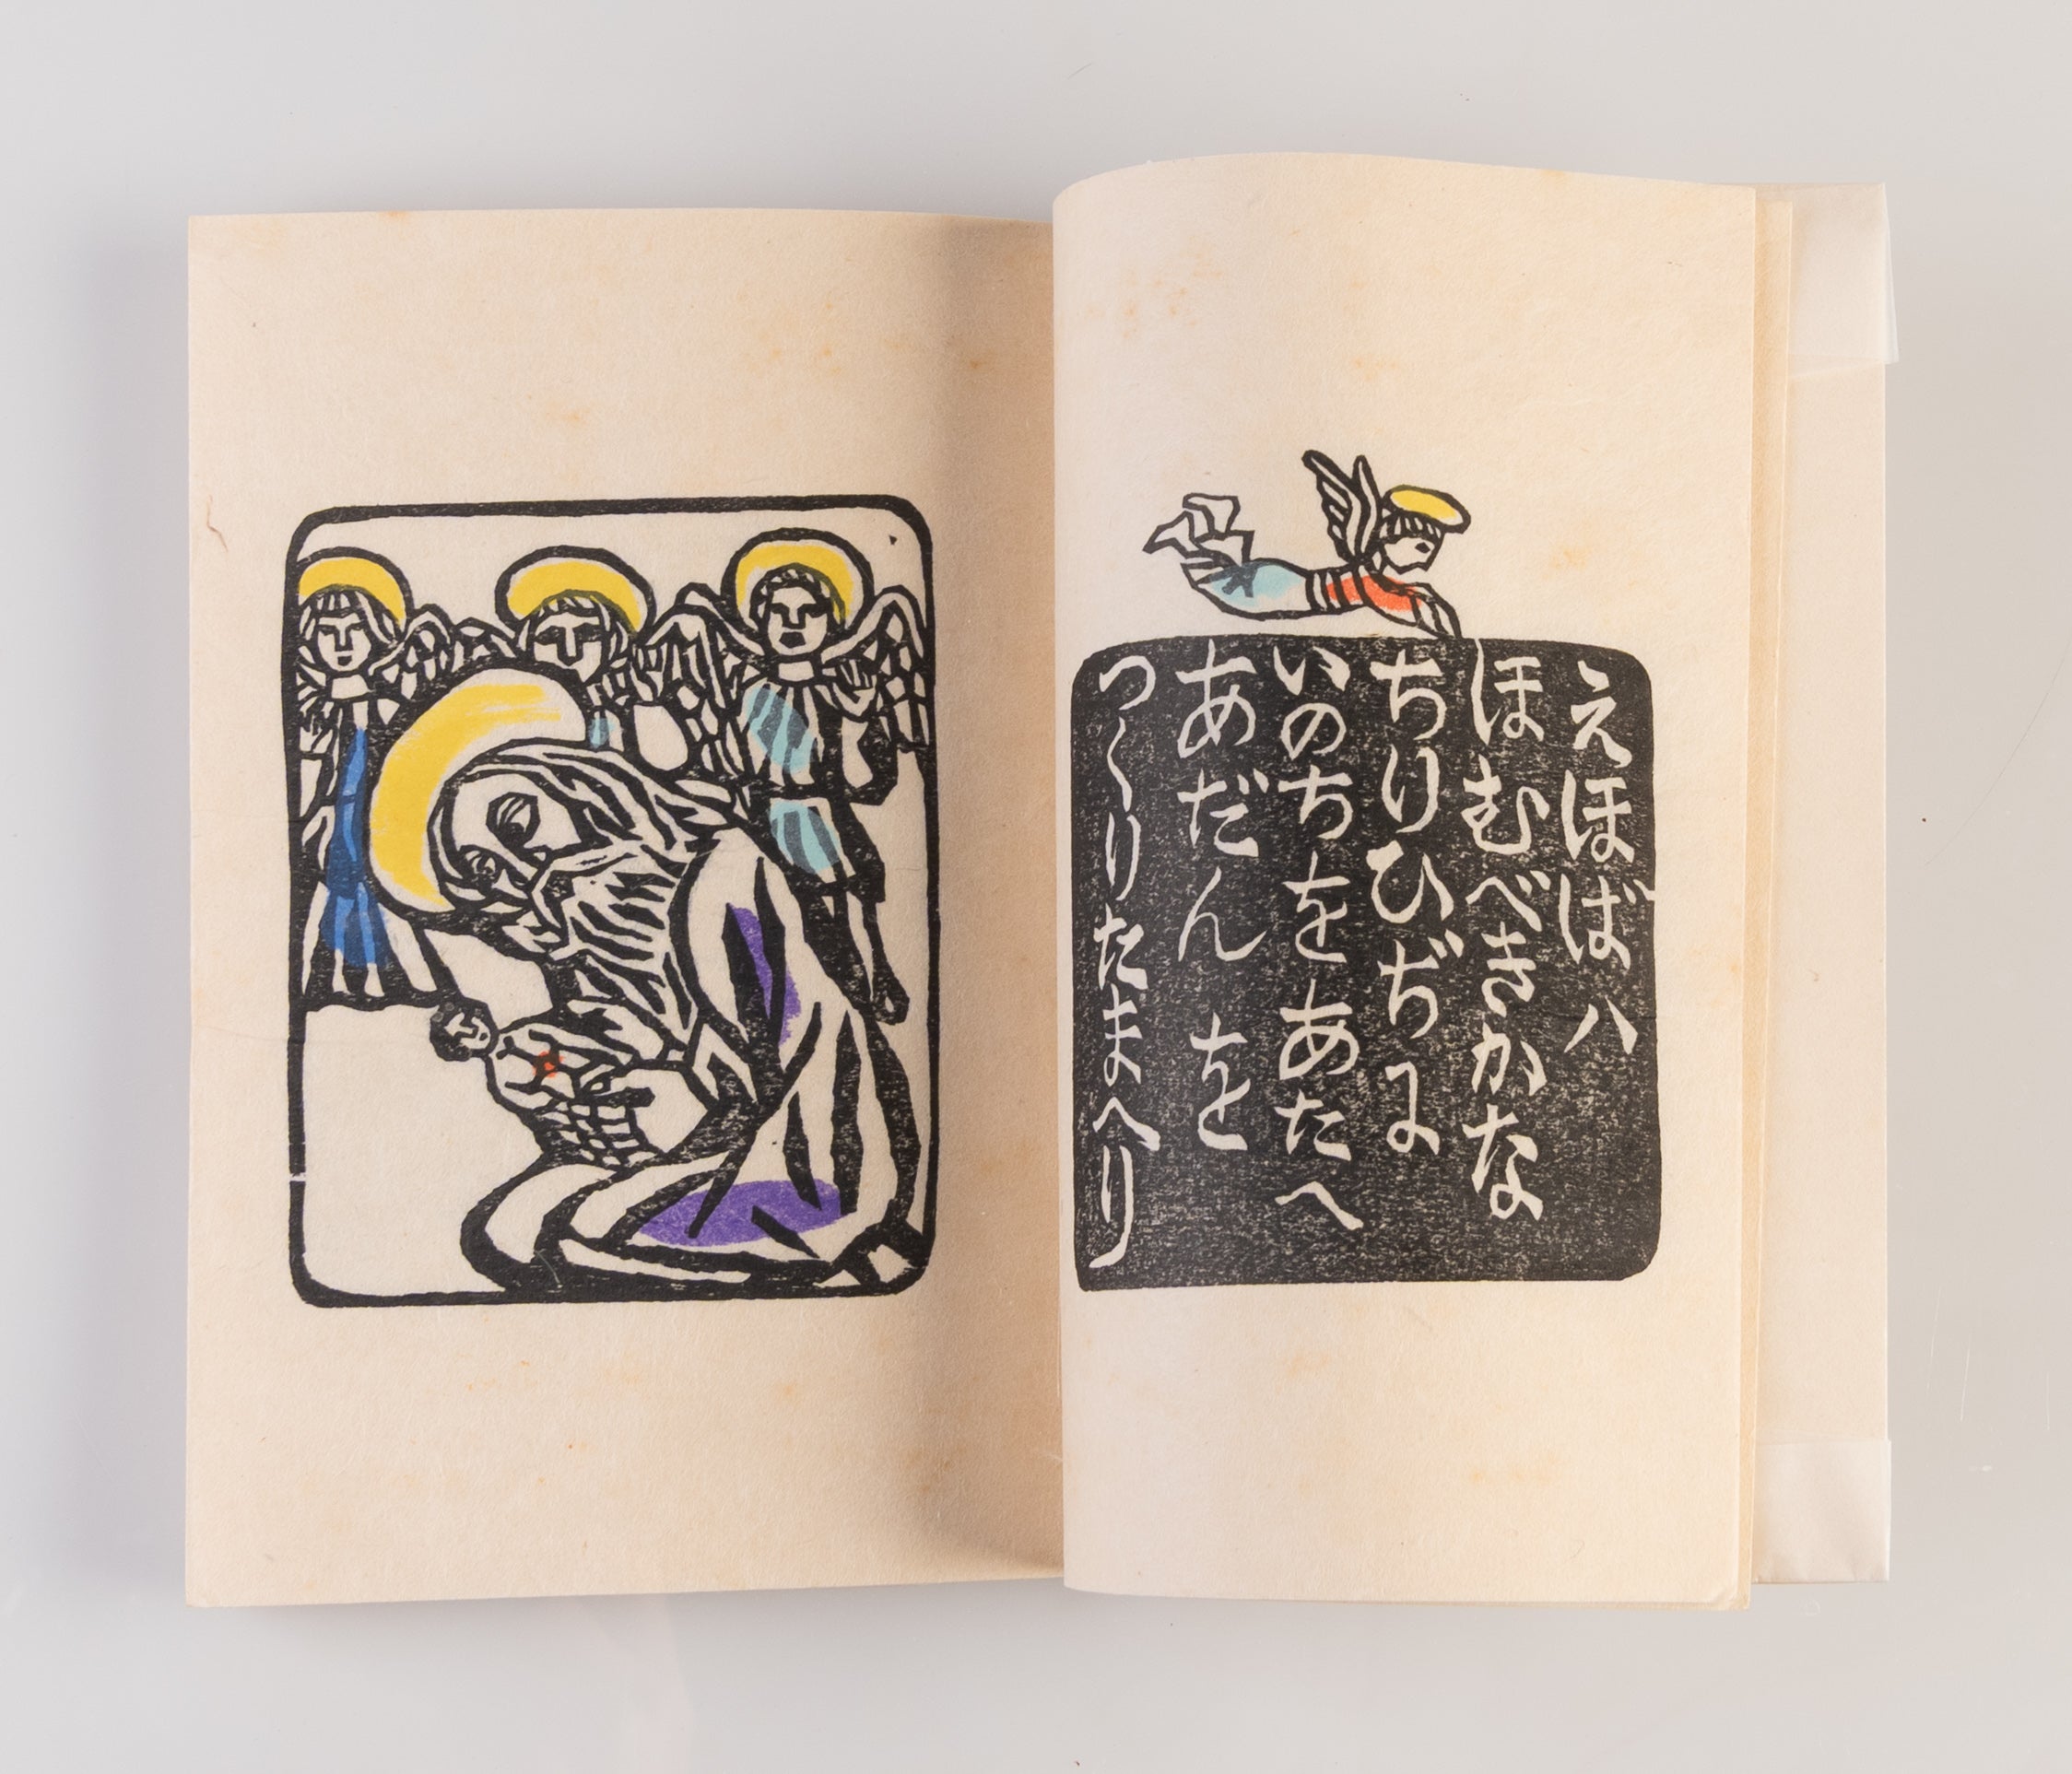 えほばハ
ほむべきかな
ちりひぢに
いのちをあたへ
あだんを
つくりたまへり